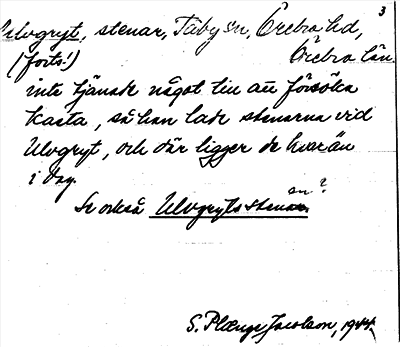 3
Ulvgryt, stenar, Täby sn, Örebro hd,
(forts!) Örebro län.
inte tjänade något till att försöka
kasta, så han lade stenarna vid
Ulvgryt, och där ligger de kvar än
i dag.
Se också Ulvgrytsstenar. en?
S. Plænge Jacobson, 1944.